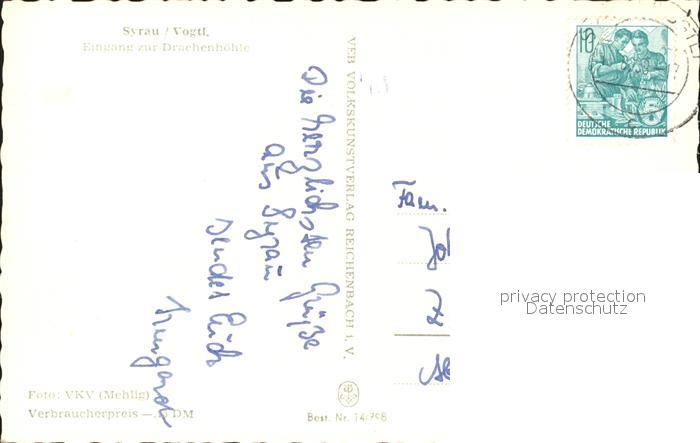 Syrau / Vogtl.
Eingang zur Drachenhöhle
Die herzlichsten Grüße
aus Syrau
sendet Euch
Irmgard
Foto: VKV (Mehlig)
Verbraucherpreis DM
VEB VOLKSKUNSTVERLAG REICHENBACH i. V.
Best. Nr. 14/798
10
DEUTSCHE
DEMOKRATISCHE REPUBLIK
Fam.
privacy protection
Datenschutz